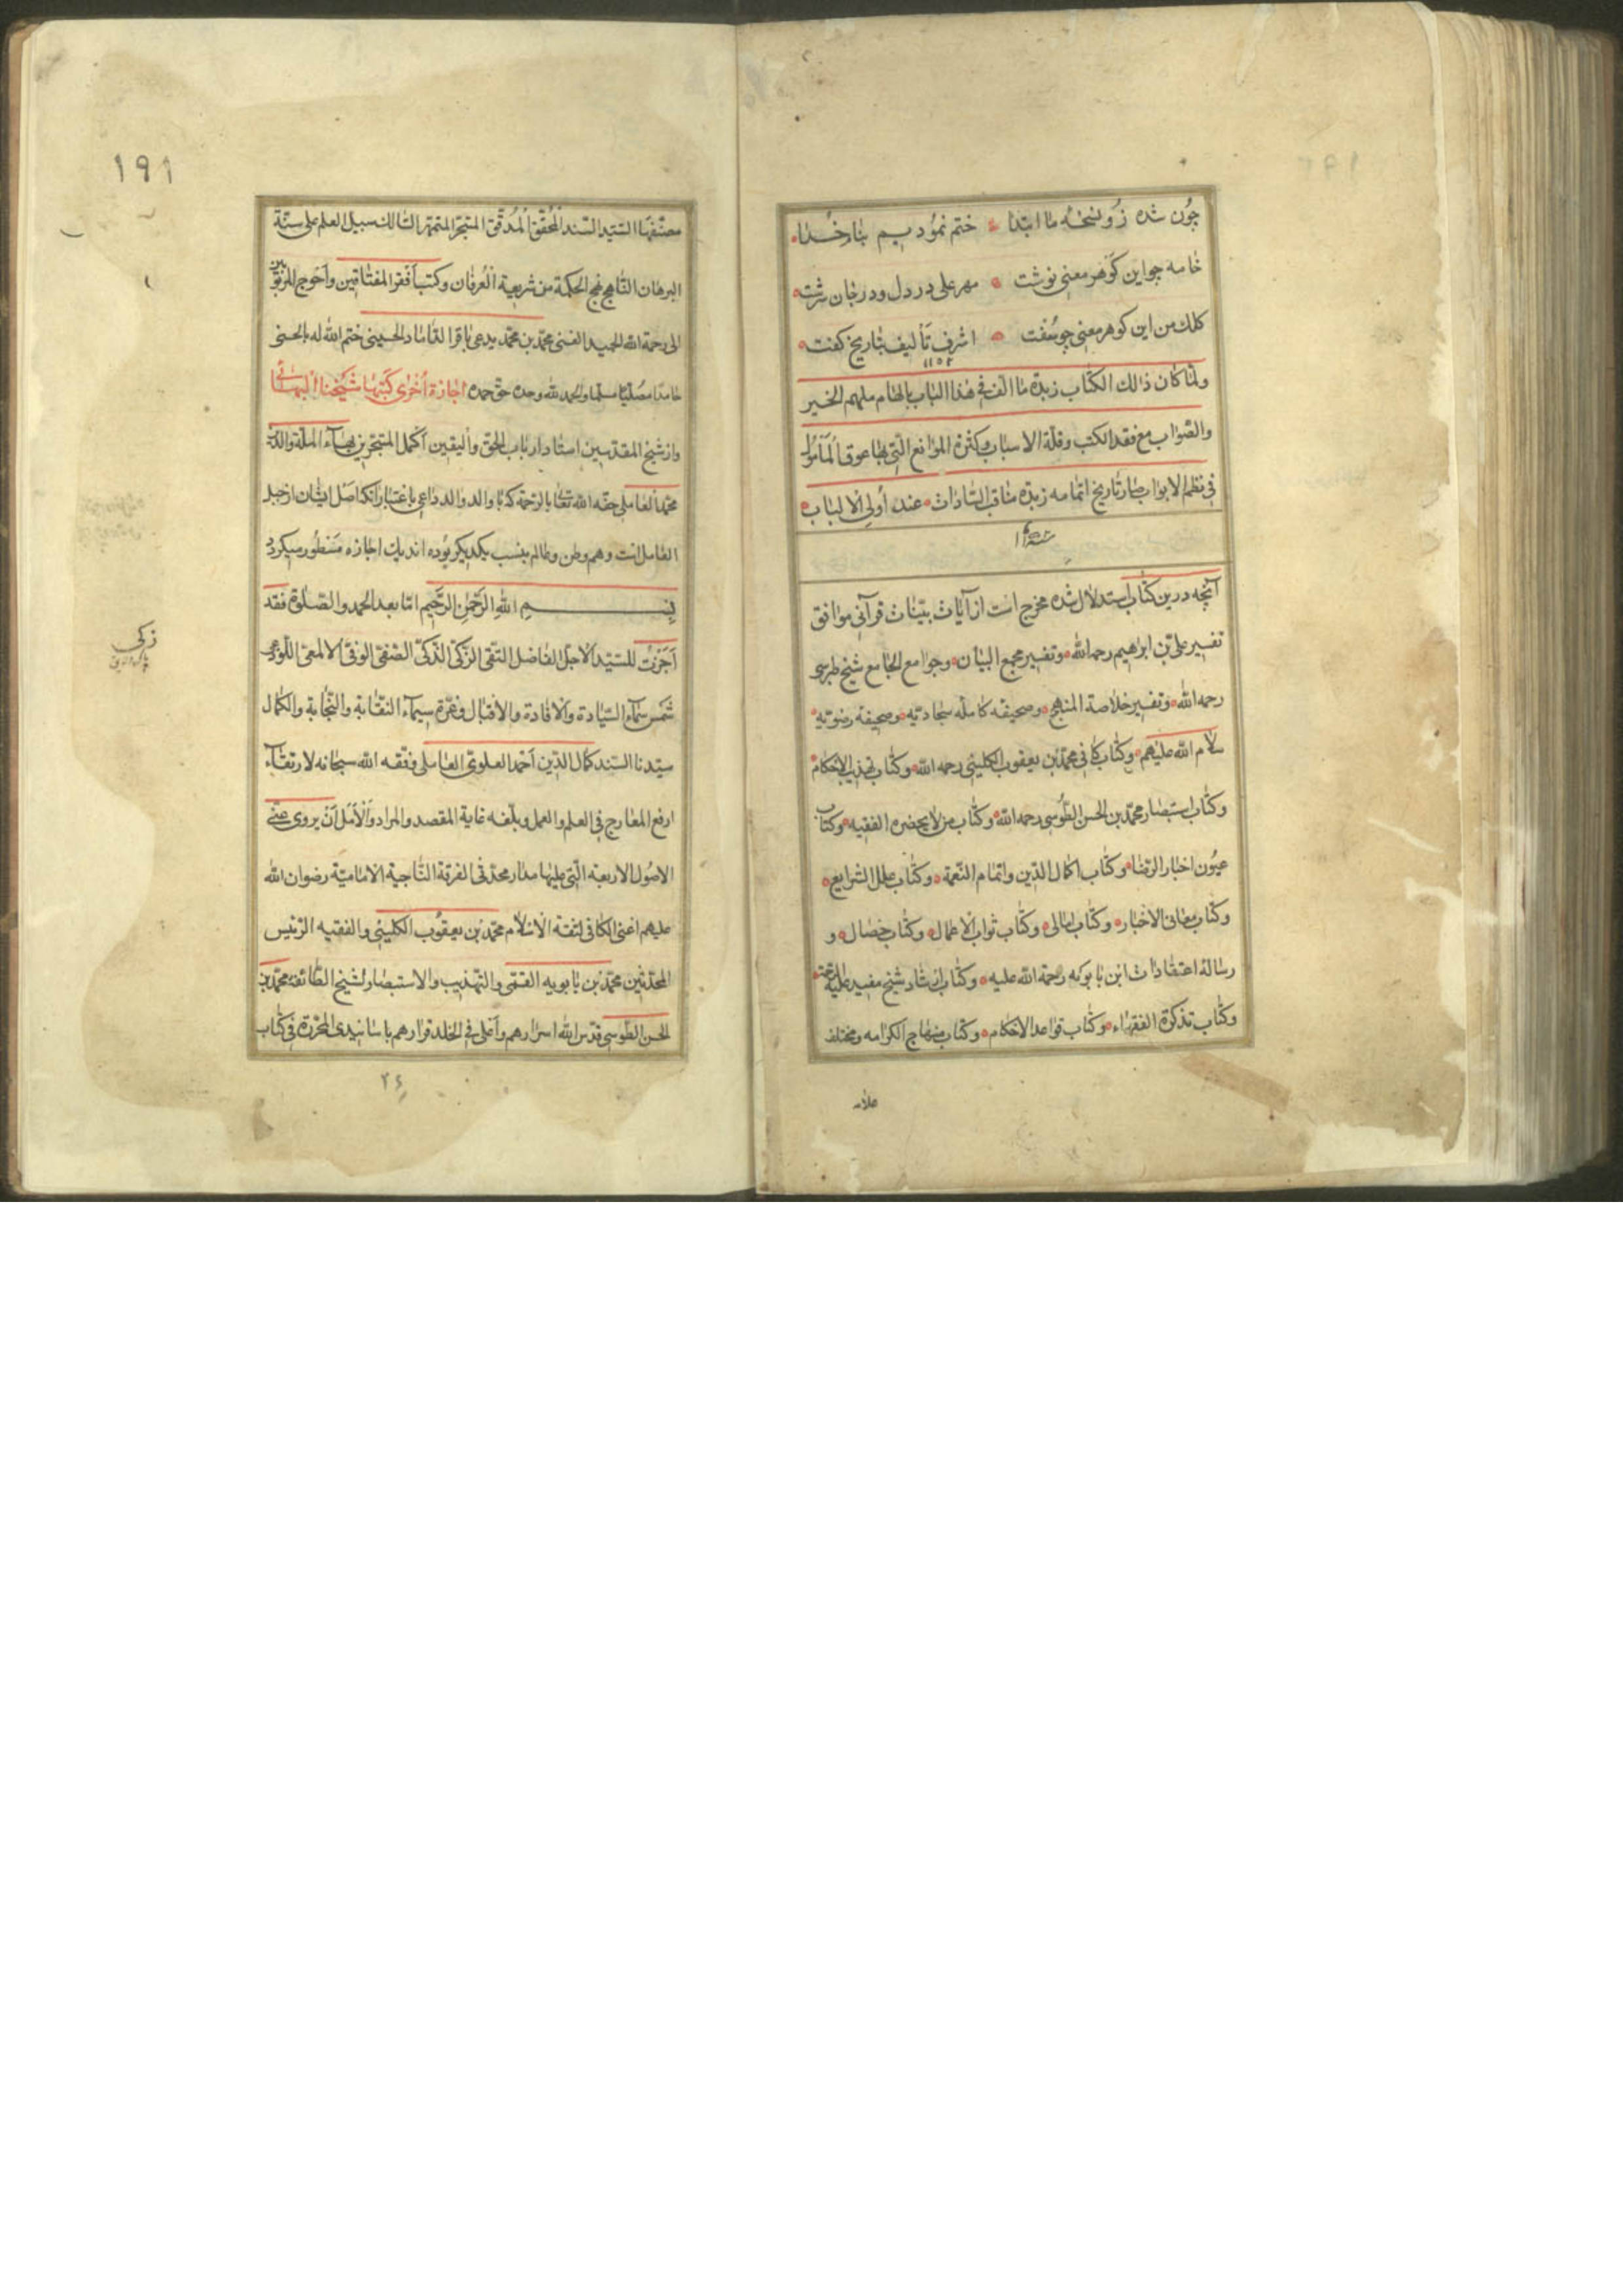 چون شده زو نسخهٔ ما ابتدا ختم نمودیم بنام خدا
خامه چو این گوهر معنی نوشت مهر علی در دل و در جان سرشت
کلک من این گوهر معنی چو سفت اشرف تألیف بتاریخ گفت
۱۱۵۲
ولمّا کان ذالك الکتاب زبدة ما الف فی هذا الباب بالهام ملهم الخیر
والصّواب مع فقد الکتب وقلّة الاسباب وکثرة الموانع الّتی بها عوق المأمول
فی نظم الابواب صار تاریخ اتمامه زبدة مناقب السّادات عند أولی الالباب
آنچه درین کتاب استدلال شده مخرج است از آیات بیّنات قرآنی موافق
تفسیر علی بن ابرهیم رحمه الله وتفسیر مجمع البیان وجوامع الجامع شیخ طبرسی
رحمه الله وتفسیر خلاصة المنهج وصحیفه کامله سجادیّه وصحیفه رضویّه
سلام الله علیهم وکتاب کافی محمّد بن یعقوب الکلینی رحمه الله وکتاب تهذیب الاحکام
وکتاب استبصار محمّد بن الحسن الطّوسی رحمه الله وکتاب من لا یحضره الفقیه وکتاب
عیون اخبار الرّضا وکتاب اکمال الدّین واتمام النّعمة وکتاب علل الشرایع
وکتاب معانی الاخبار وکتاب امالی وکتاب ثواب الاعمال وکتاب خصال و
رسالهٔ اعتقادات ابن بابویه رحمة الله علیه وکتاب ارشاد شیخ مفید علیه الرحمة
وکتاب تذکرة الفقهاء وکتاب قواعد الاحکام وکتاب منهاج الکرامه ومختلف
علامه
۱۹۱
مصنّفها السّیّد السّند المُحقّق المُدقّق المتبحّر المتمهّر السّالك سبیل العلم علی سنّة
البرهان النّاهج نهج الحکمة من شریعة العُرفان وکتب أفقر المفتاقین وأحوج المربوبین
الی رحمة الله الحمید الغنی محمّد بن محمّد یدعی باقر الدّاماد الحسینی ختم الله له بالحسنی
حامدا مصلّیا مسلّما والحمد لله وحده حقّ حمده اجازة أخرى کتبها شیخنا البهائی
واز شیخ المقدسین استاد ارباب الحق والیقین أکمل المتبحّرین بهاء الملّة والدّین
محمّد العاملی حفّه الله تعالی بالرّحمة که با والد والد داعی باعتبار آنکه اصل ایشان از جبل
العامل است وهم وطن ... بنسب یکدیگر بوده اند بدین اجازه مسطور میکردد
بسم الله الرّحمن الرّحیم امّا بعد الحمد والصّلوة فقد
أجزت للسّیّد الاجلّ الفاضل التقی الزّکی الذّکیّ الصّفی الوفیّ الالمعیّ اللّوذعی
شمس سماء السّیادة والافادة والاقبال وغرّة سیمآء النقابة والنّجابة والکمال
سیّدنا السّند کمال الدّین أحمد العلویّ العاملی وفّقه الله سبحانه لارتقآء
ارفع المعارج فی العلم والعمل وبلّغه غایة المقصد والمراد والأمل أن یروی عنّی
الاصول الاربعه الّتی علیها مدار محدّثی الفرقة النّاجیة الامامیّة رضوان الله
علیهم اعنی الکافی لثقة الاسلام محمّد بن یعقوب الکلینی والفقیه الرّئیس
المحدّثین محمّد بن بابویه القمّی والتّهذیب والاستبصار لشیخ الطّائفة محمّد بن
الحسن الطّوسی قدّس الله اسرارهم وأعلی فی الخلد قرارهم باسانیدی المحرّرة فی کتاب
زکی
۲۴